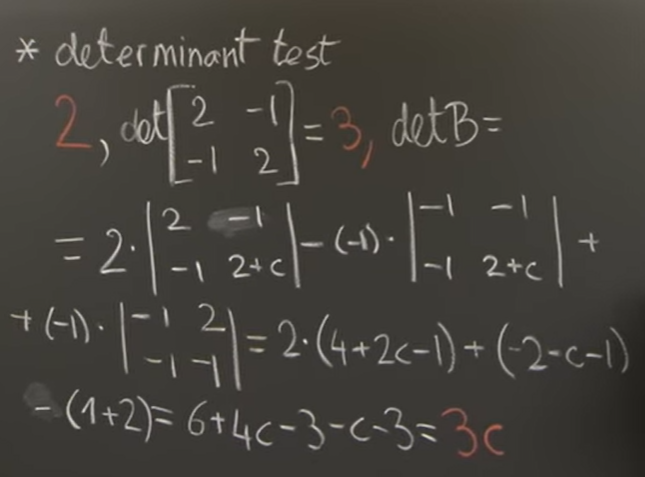 * determinant test
2, det [2 -1; -1 2] = 3, det B =
= 2 · |2 -1; -1 2+c| - (-1) · |-1 -1; -1 2+c| +
+ (-1) · |-1 2; -1 -1| = 2 · (4+2c-1) + (-2-c-1)
- (1+2) = 6+4c-3-c-3 = 3c